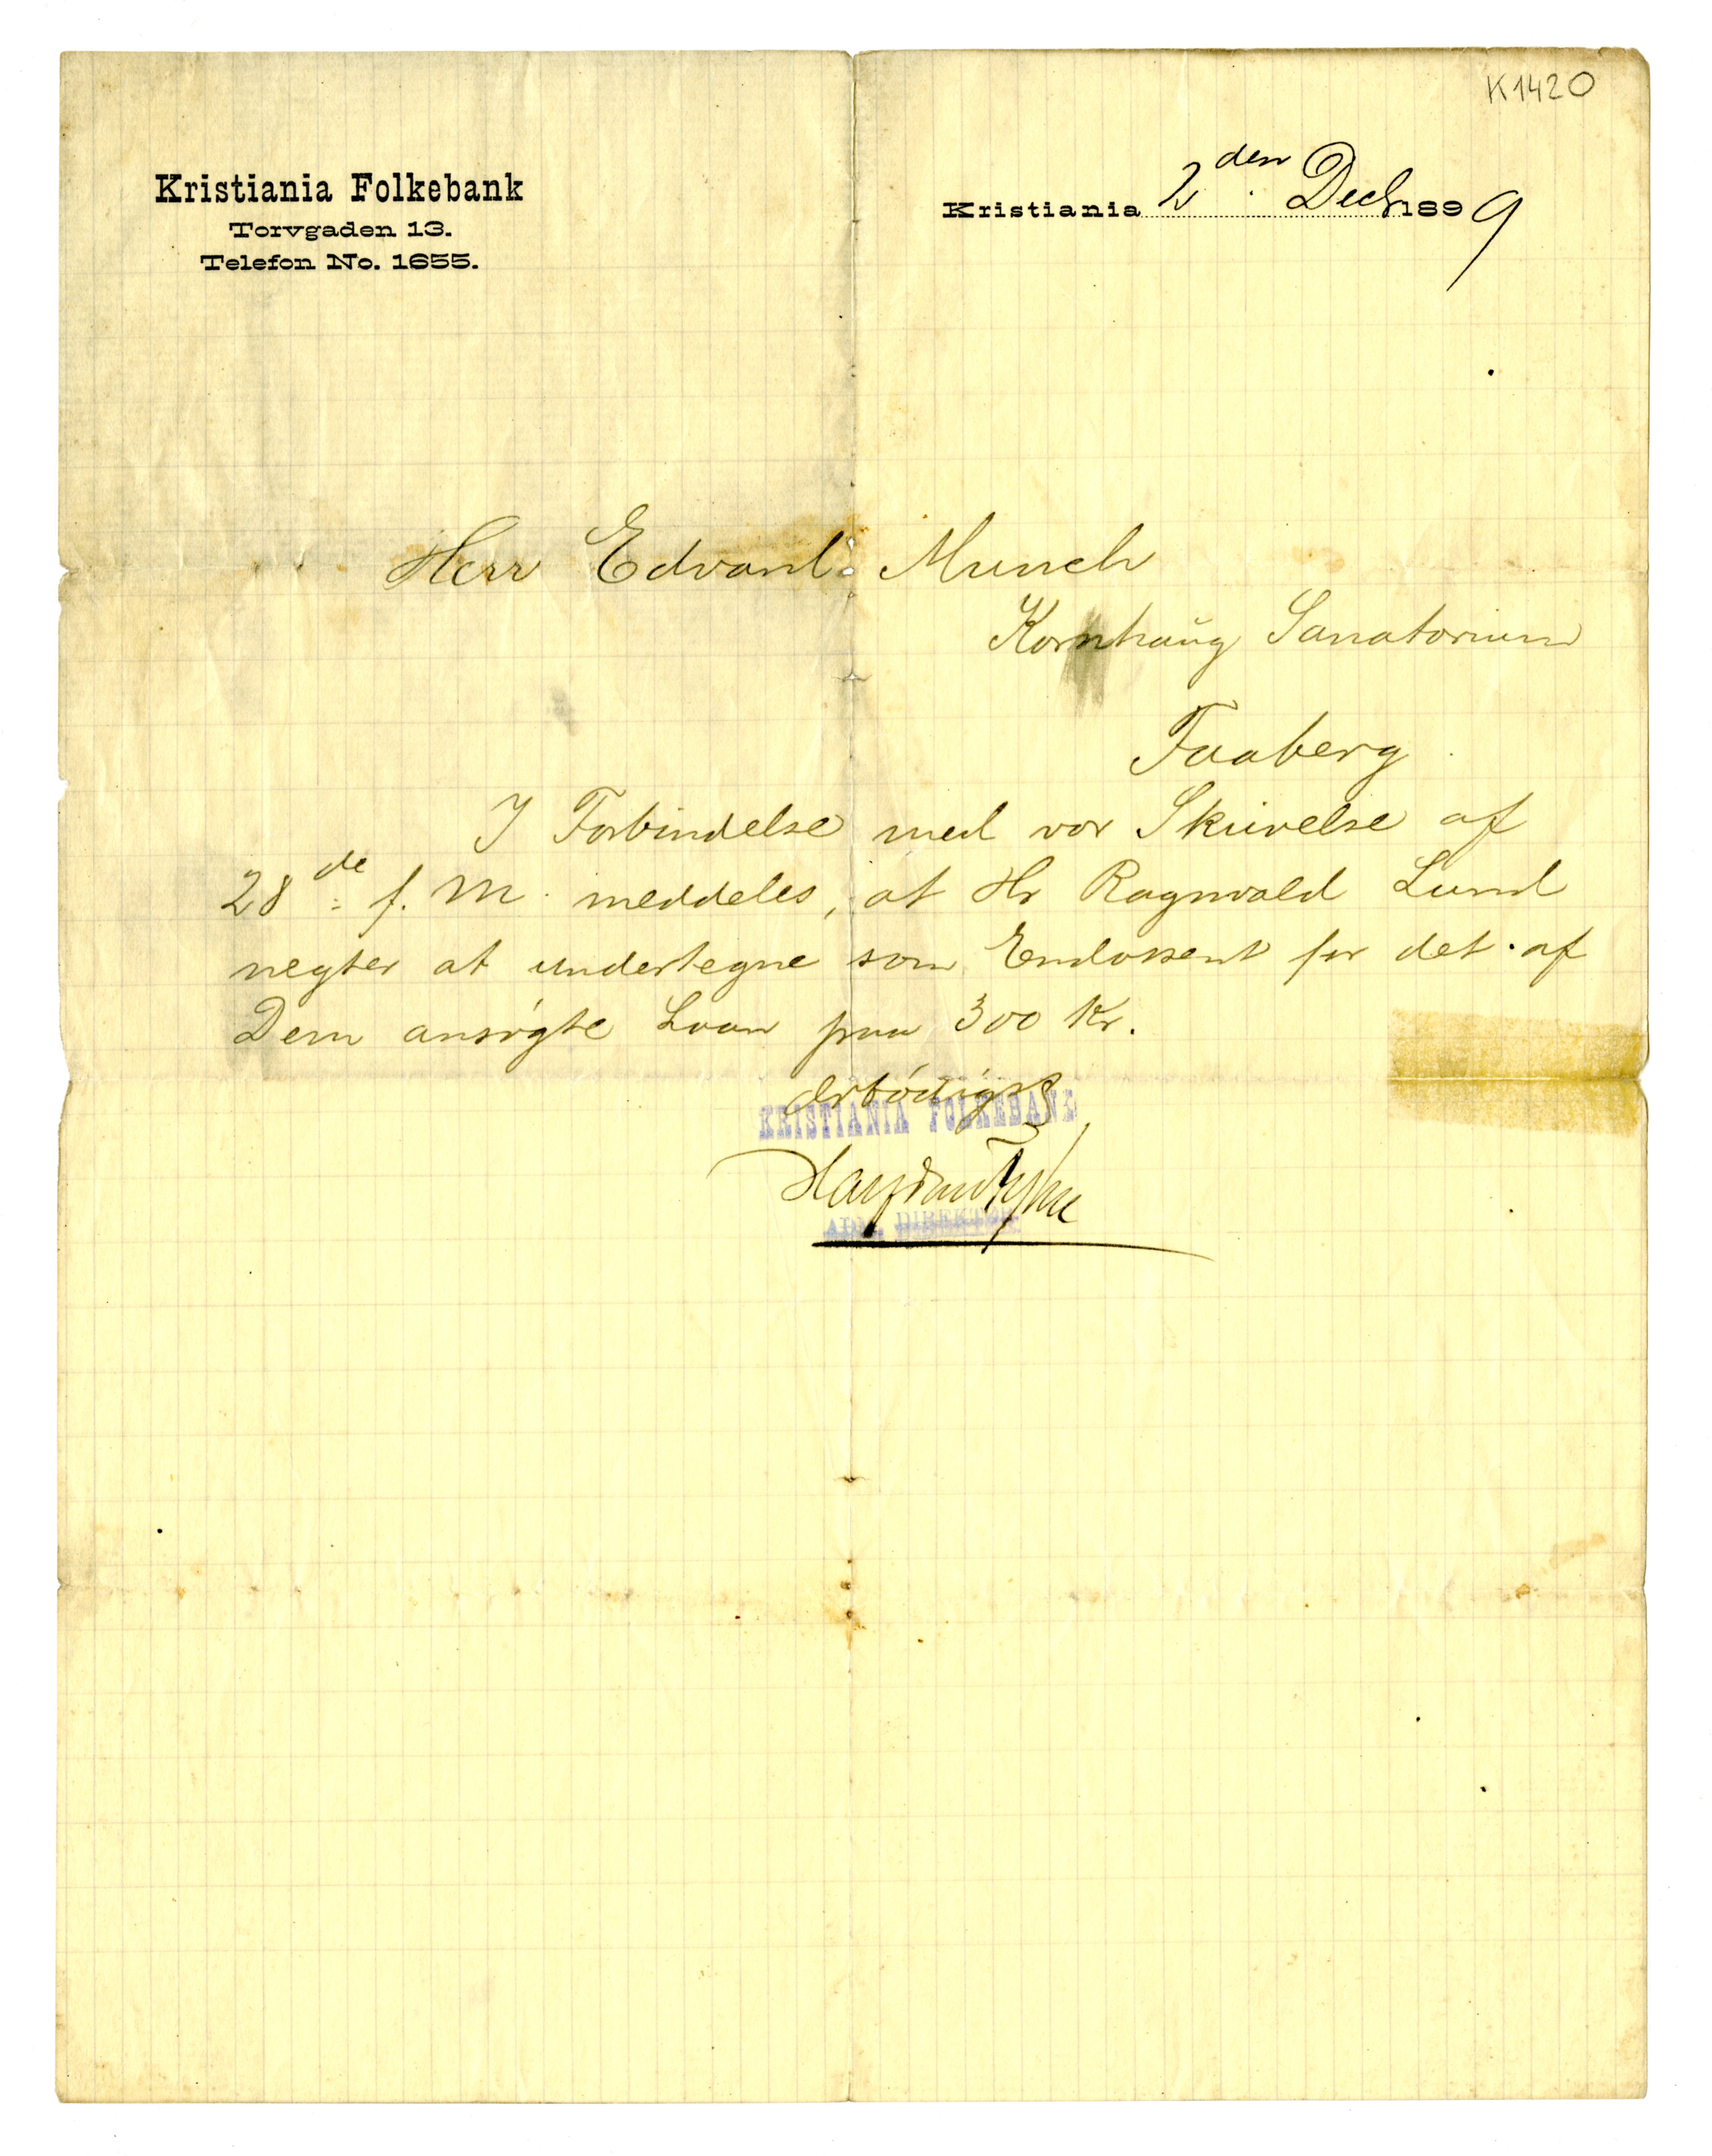 K1420
Kristiania Folkebank
Torvgaden 13.
Telefon No. 1655.
Kristiania 2den Decbr 1899
Herr Edvard Munch
Kornhaug Sanatorium
Faaberg
I Forbindelse med vor Skrivelse af
28de f. M. meddeles, at Hr Ragnvald Lund
negter at undertegne som Endossent for det af
Dem ansøgte Laan paa 300 Kr.
Ærbødigst
KRISTIANIA FOLKEBANK
ADM. DIREKTØR